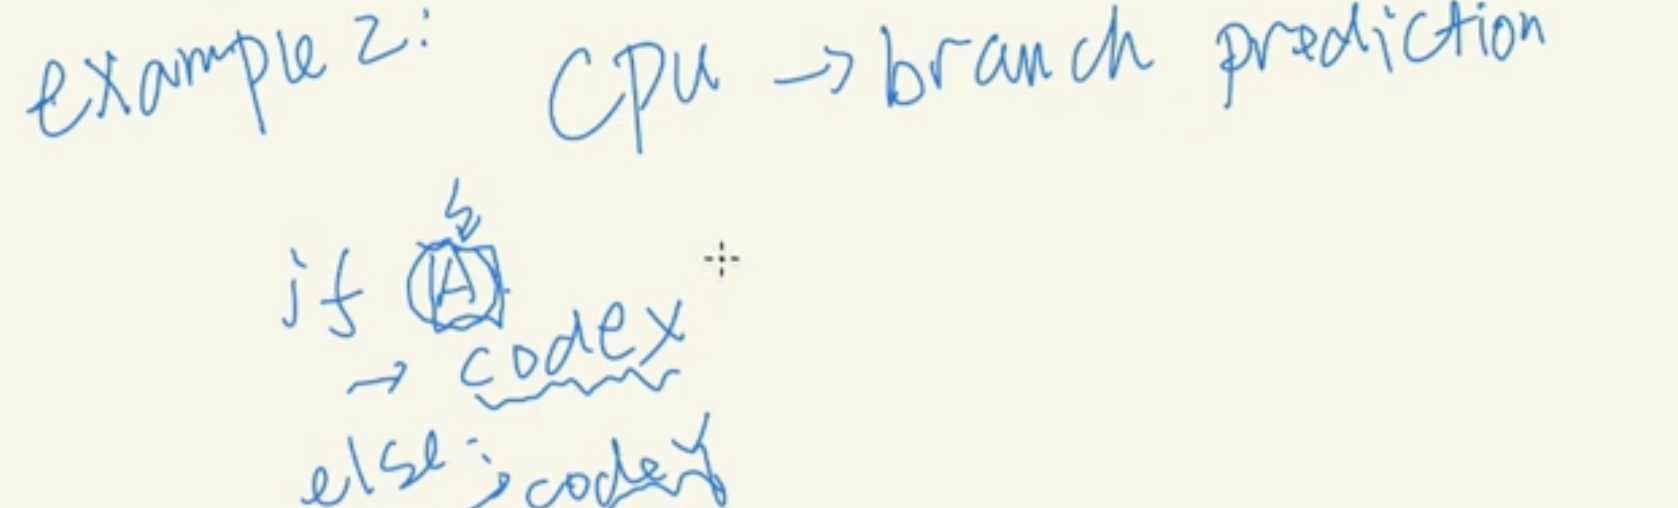 example 2: CPU → branch prediction
if A
→ code x
else: code y